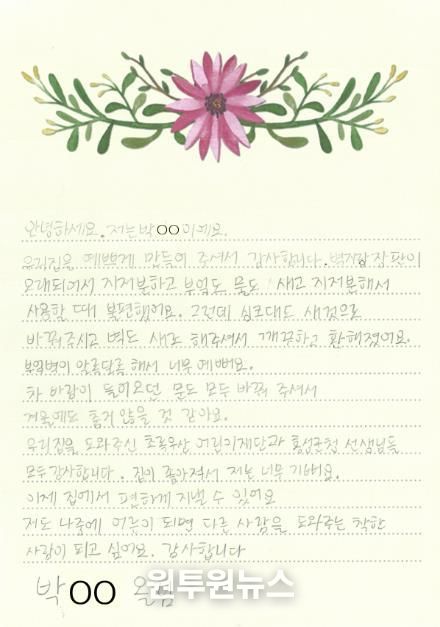 안녕하세요. 저는 박OO이에요.
우리집을 예쁘게 만들어 주셔서 감사합니다. 벽지랑 장판이
오래되어서 지저분하고 부엌도 물도 새고 지저분해서
사용할 때 불편했어요. 그런데 싱크대도 새것으로
바꿔주시고 벽도 새로 해주셔서 깨끗하고 환해졌어요.
부엌벽이 알록달록해서 너무 예뻐요.
찬 바람이 들어오던 문도 모두 바꿔 주셔서
겨울에도 춥지 않을 것 같아요.
우리집을 도와주신 초록우산 어린이재단과 홍성군청 선생님들
모두 감사합니다. 집이 좋아져서 저는 너무 기뻐요.
이제 집에서 편하게 지낼 수 있어요
저도 나중에 어른이 되면 다른 사람을 도와주는 착한
사람이 되고 싶어요. 감사합니다
박OO 올림
원투원뉴스